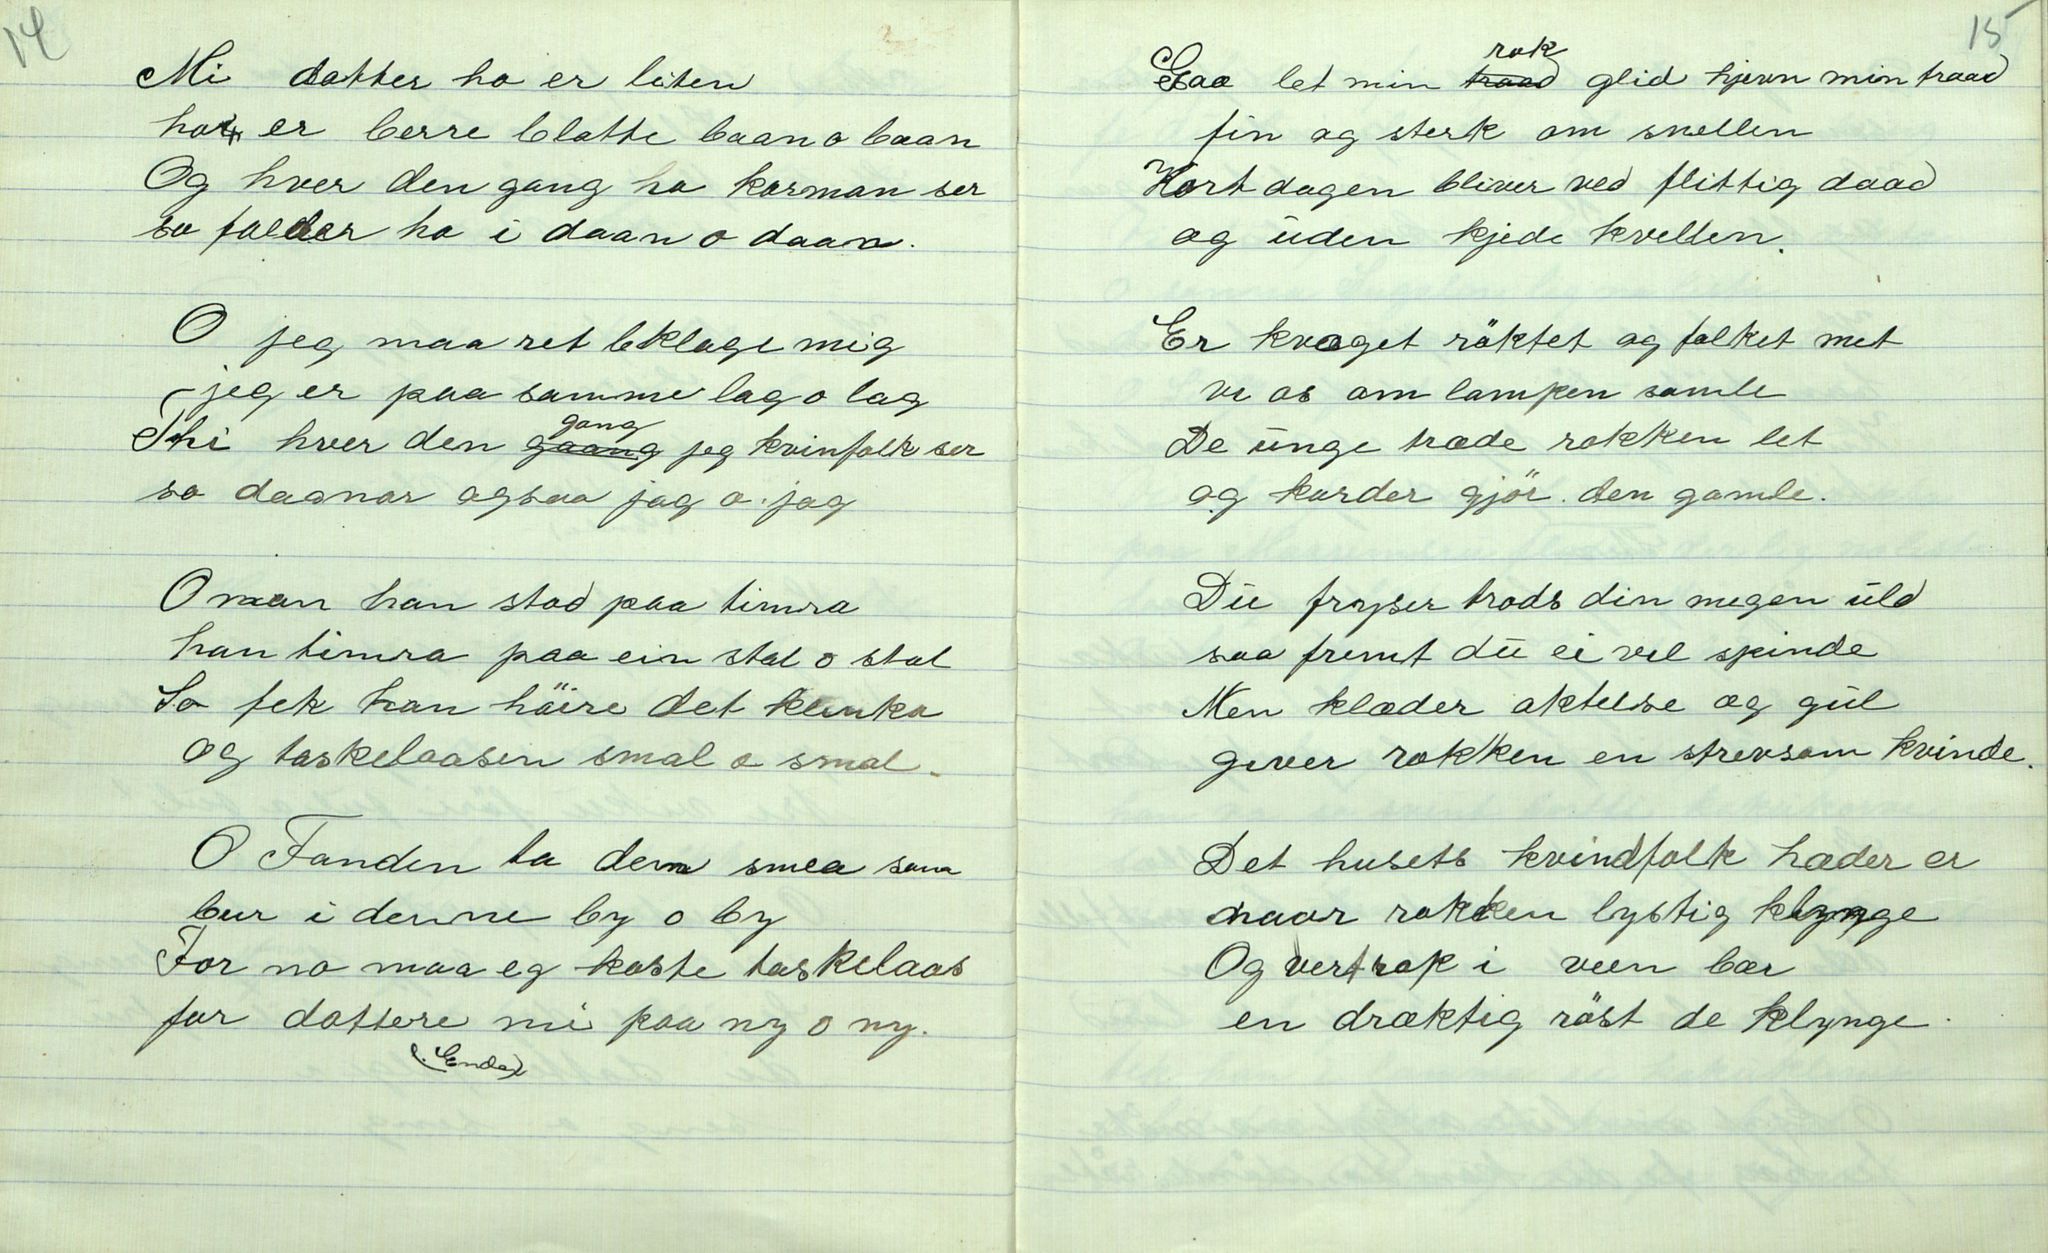 14
Mi datter ho er liten
ho er berre blatte baan o baan
Og hver den gang ho karman ser
so falder ho i daan o daan.
O jeg maa ret beklage mig
jeg er paa samme lag o lag
Thi hver den gaang gang jeg kvinfolk ser
so daanar ogsaa jag o jag
O man han stod paa timra
han timra paa ein stal o stal
So fek han höire det klunka
og taskelaasen smal o smal.
O Fanden ta dem smea som
bur i denne by o by
For no maa eg koste taskelaas
for dottere mi paa ny o ny.
(Enda)
15
Saa let min traad rok glid hjevn min traad
fin og sterk om snellen
Kort dagen bliver ved flittig daad
og uden kjede kvellen.
Er kvæget röktet og folket met
vi os om lampen samle
De unge træde rokken let
og karder gjör den gamle.
Du fryser trods din megen uld
saa fremt du ei vil spinde
Men klæder aktelse og gul
giver rokken en strevsom kvinde.
Det husets kvindfolk hæder er
naar rokken lystig klynge
Og vertrok i veen bær
en dræktig röst de klynge.